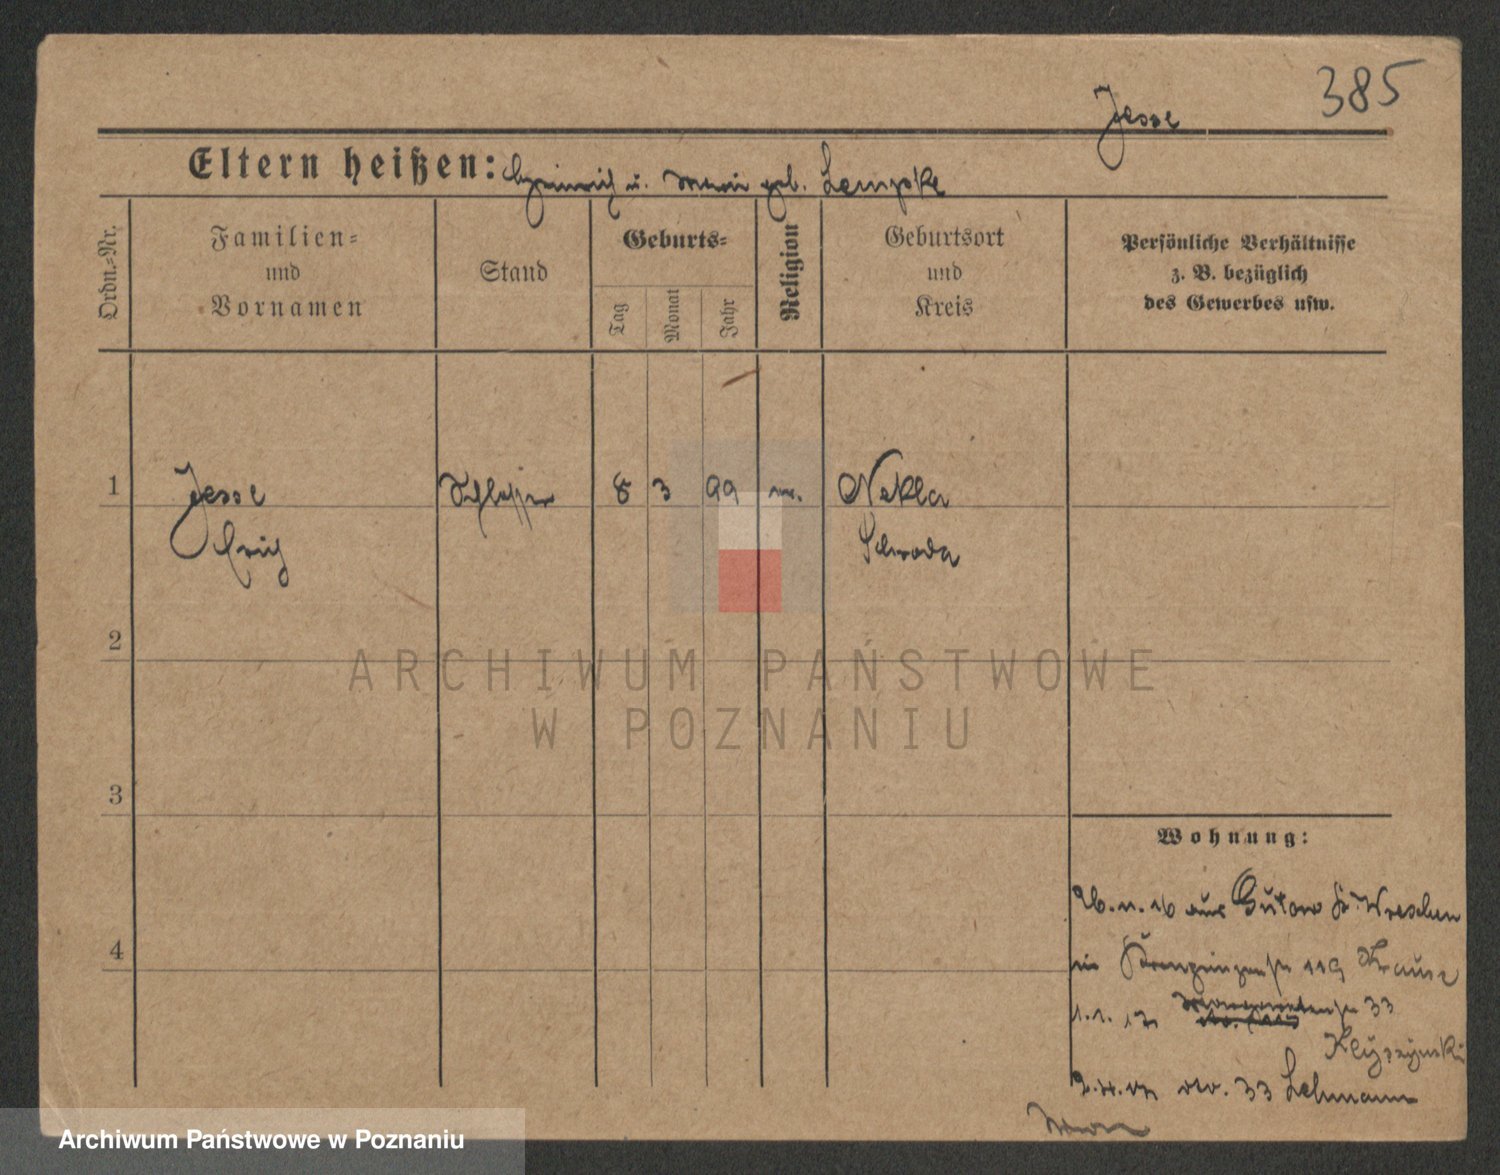 385
Jesse
Eltern heißen: Heinrich u. Marie geb. Lempke
Ordn.-Nr.
Familien-
und
Vornamen
Stand
Geburts-
Tag
Monat
Jahr
Religion
Geburtsort
und
Kreis
Persönliche Verhältnisse
z. B. bezüglich
des Gewerbes usw.
1 Jesse Schlosser 8 3 99 Nekla
Erich Schroda
2
ARCHIWUM PAŃSTWOWE
W POZNANIU
3
Wohnung:
4
aus Gutow Kr Wreschen
in Kronprinzenstr 119 Krause
1.1.17 33
33 Lehmann
Archiwum Państwowe w Poznaniu